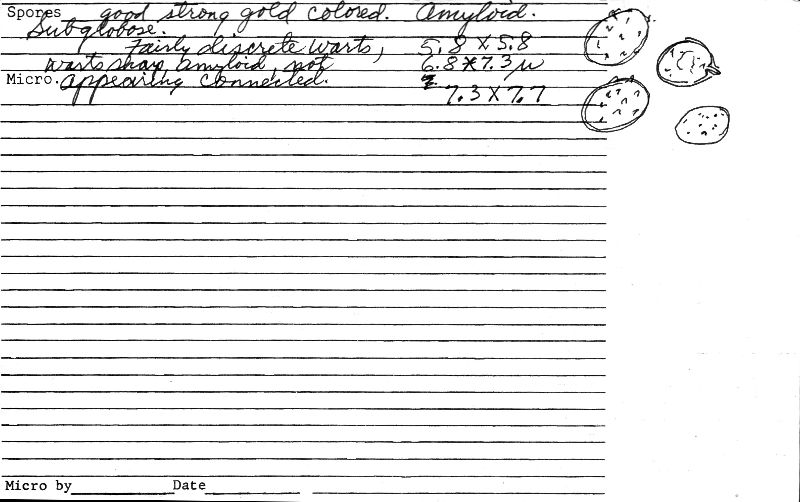 Spores good strong gold colored. Amyloid.
Subglobose.
Fairly discrete warts, 5.8 X 5.8
warts sharp, amyloid, not 6.8 X 7.3 µ
Micro. appearing connected.
7.3 X 7.7
Micro by Date